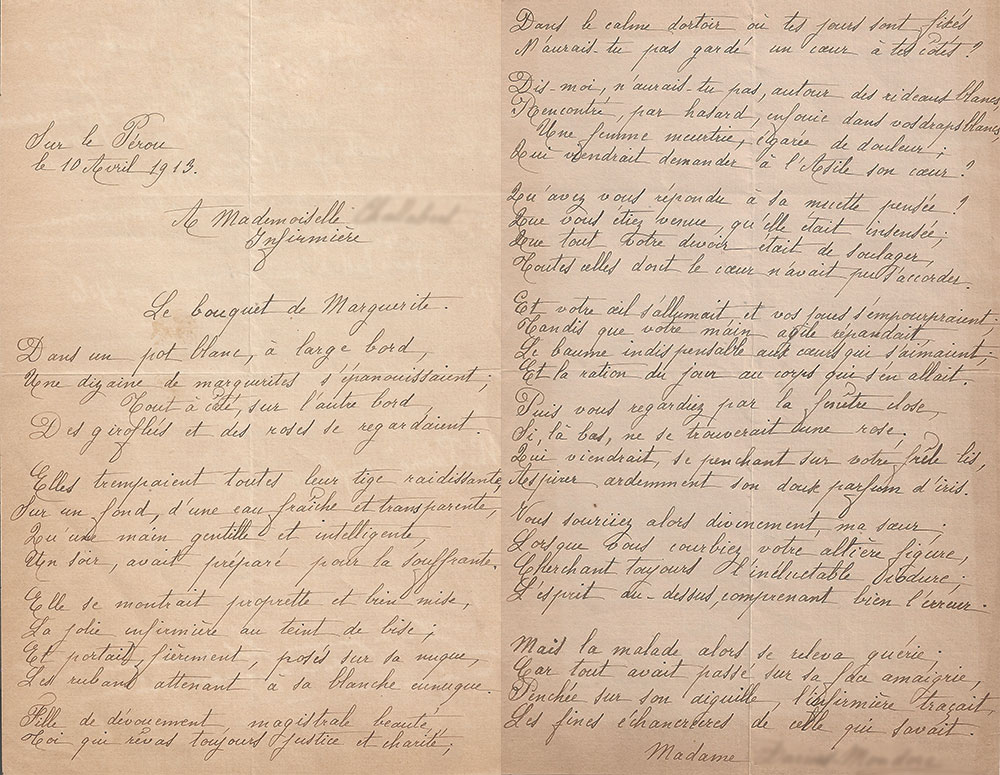 Sur le Pérou
le 10 Avril 1913.
A Mademoiselle
Infirmière
Le bouquet de Marguerite.
Dans un pot blanc, à large bord,
Une dizaine de marguerites s'épanouissaient;
Tout à côté, sur l'autre bord,
Des giroflés et des roses se regardaient.
Elles trempaient toutes leur tige raidissante,
Sur un fond, d'une eau fraîche et transparente,
Qu'une main gentille et intelligente,
Un soir, avait préparé pour la souffrante.
Elle se montrait proprette et bien mise,
La jolie infirmière au teint de bise;
Et portait, fièrement, posés sur sa nuque,
Les rubans attenant à sa blanche eunuque.
Fille de dévouement, magistrale beauté,
Toi qui rêvas toujours justice et charité;
Dans le calme dortoir où tes jours sont fixés
N'aurais-tu pas gardé un cœur à tes côtés?
Dis-moi, n'aurais-tu pas, autour des rideaux blancs,
Rencontré, par hasard, enfouie dans vos draps blancs,
Une femme meurtrie, égarée de douleur;
Qui viendrait demander à l'Asile son cœur?
Qu'avez vous répondu à sa muette pensée?
Que vous étiez venue, qu'elle était insensée;
Que tout votre devoir était de soulager,
Toutes celles dont le cœur n'avait pu s'accorder.
Et votre œil s'allumait et vos joues s'empourpraient;
Tandis que votre main agile répandait,
Le baume indispensable aux cœurs qui s'aimaient;
Et la ration du jour au corps qui s'en allait.
Puis vous regardiez par la fenêtre close,
Si, là bas, ne se trouverait une rose.
Qui viendrait, se penchant sur votre frêle lis,
Aspirer ardemment son doux parfum d'iris.
Vous souriiez alors divinement, ma sœur;
Lorsque vous courbiez votre altière figure,
Cherchant toujours l'inéluctable
L'esprit au-dessus, comprenant bien l'erreur.
Mais la malade alors se releva guérie;
Car tout avait passé sur sa face amaigrie
Penchée sur son aiguille, l'infirmière traçait,
Les fines échancrures de celle qui savait.
Madame